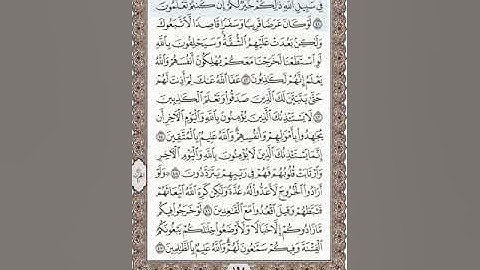 فِي سَبِيلِ ٱللَّهِ ذَٰلِكُمۡ خَيۡرٞ لَّكُمۡ إِن كُنتُمۡ تَعۡلَمُونَ
٤١ لَوۡ كَانَ عَرَضٗا قَرِيبٗا وَسَفَرٗا قَاصِدٗا لَّٱتَّبَعُوكَ
وَلَٰكِنۢ بَعُدَتۡ عَلَيۡهِمُ ٱلشُّقَّةُۚ وَسَيَحۡلِفُونَ بِٱللَّهِ
لَوِ ٱسۡتَطَعۡنَا لَخَرَجۡنَا مَعَكُمۡ يُهۡلِكُونَ أَنفُسَهُمۡ وَٱللَّهُ
يَعۡلَمُ إِنَّهُمۡ لَكَٰذِبُونَ ٤٢ عَفَا ٱللَّهُ عَنكَ لِمَ أَذِنتَ لَهُمۡ
حَتَّىٰ يَتَبَيَّنَ لَكَ ٱلَّذِينَ صَدَقُواْ وَتَعۡلَمَ ٱلۡكَٰذِبِينَ
٤٣ لَا يَسۡتَـٔۡذِنُكَ ٱلَّذِينَ يُؤۡمِنُونَ بِٱللَّهِ وَٱلۡيَوۡمِ ٱلۡأٓخِرِ أَن
يُجَٰهِدُواْ بِأَمۡوَٰلِهِمۡ وَأَنفُسِهِمۡۗ وَٱللَّهُ عَلِيمُۢ بِٱلۡمُتَّقِينَ ٤٤
إِنَّمَا يَسۡتَـٔۡذِنُكَ ٱلَّذِينَ لَا يُؤۡمِنُونَ بِٱللَّهِ وَٱلۡيَوۡمِ ٱلۡأٓخِرِ
وَٱرۡتَابَتۡ قُلُوبُهُمۡ فَهُمۡ فِي رَيۡبِهِمۡ يَتَرَدَّدُونَ ٤٥ وَلَوۡ
أَرَادُواْ ٱلۡخُرُوجَ لَأَعَدُّواْ لَهُۥ عُدَّةٗ وَلَٰكِن كَرِهَ ٱللَّهُ ٱنۢبِعَاثَهُمۡ
فَثَبَّطَهُمۡ وَقِيلَ ٱقۡعُدُواْ مَعَ ٱلۡقَٰعِدِينَ ٤٦ لَوۡ خَرَجُواْ فِيكُم
مَّا زَادُوكُمۡ إِلَّا خَبَالٗا وَلَأَوۡضَعُواْ خِلَٰلَكُمۡ يَبۡغُونَكُمُ
ٱلۡفِتۡنَةَ وَفِيكُمۡ سَمَّٰعُونَ لَهُمۡۗ وَٱللَّهُ عَلِيمُۢ بِٱلظَّٰلِمِينَ ٤٧